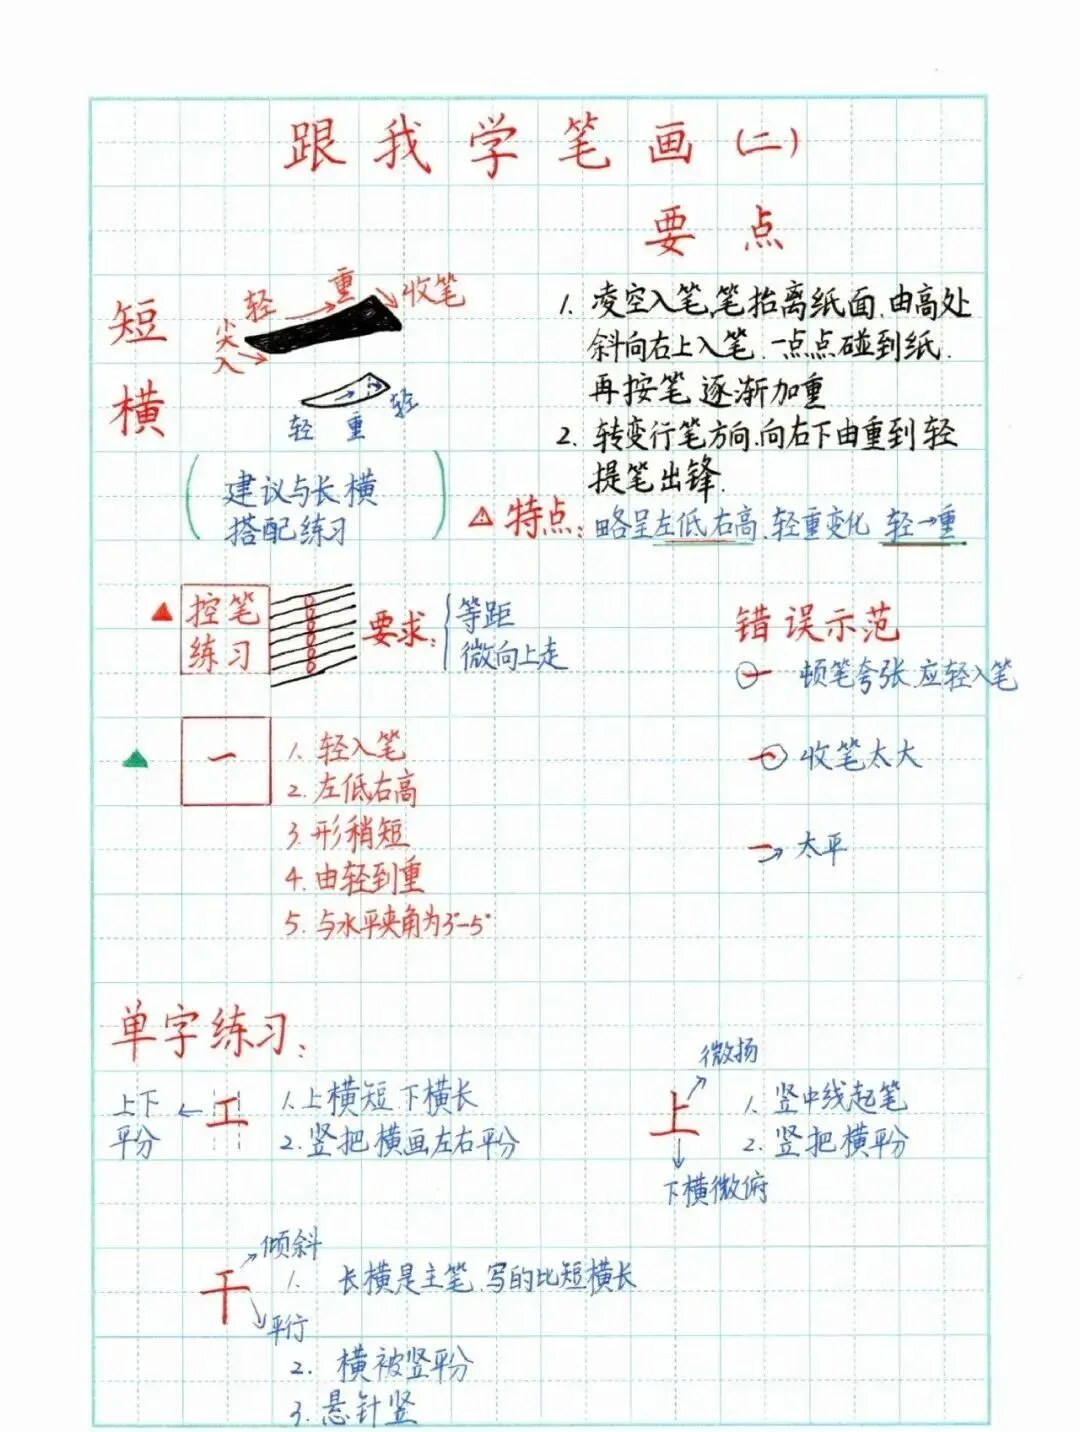 跟我学笔画(二)
要点
短横
尖入
轻
重
收笔
轻 重 轻
1. 凌空入笔,笔抬离纸面,由高处
斜向右上入笔,一点点碰到纸,
再按笔逐渐加重
2. 转变行笔方向,向右下由重到轻
提笔出锋.
(建议与长横
搭配练习)
特点:略呈左低右高,轻重变化 轻→重
控笔
练习
要求:
等距
微向上走
错误示范
顿笔夸张,应轻入笔
收笔太大
太平
一
1. 轻入笔
2. 左低右高
3. 形稍短
4. 由轻到重
5. 与水平夹角为3°-5°
单字练习:
上下
平分
工
1. 上横短 下横长
2. 竖把横画左右平分
微扬
上
下横微俯
1. 竖中线起笔
2. 竖把横平分
倾斜
干
平行
1. 长横是主笔,写的比短横长
2. 横被竖平分
3. 悬针竖